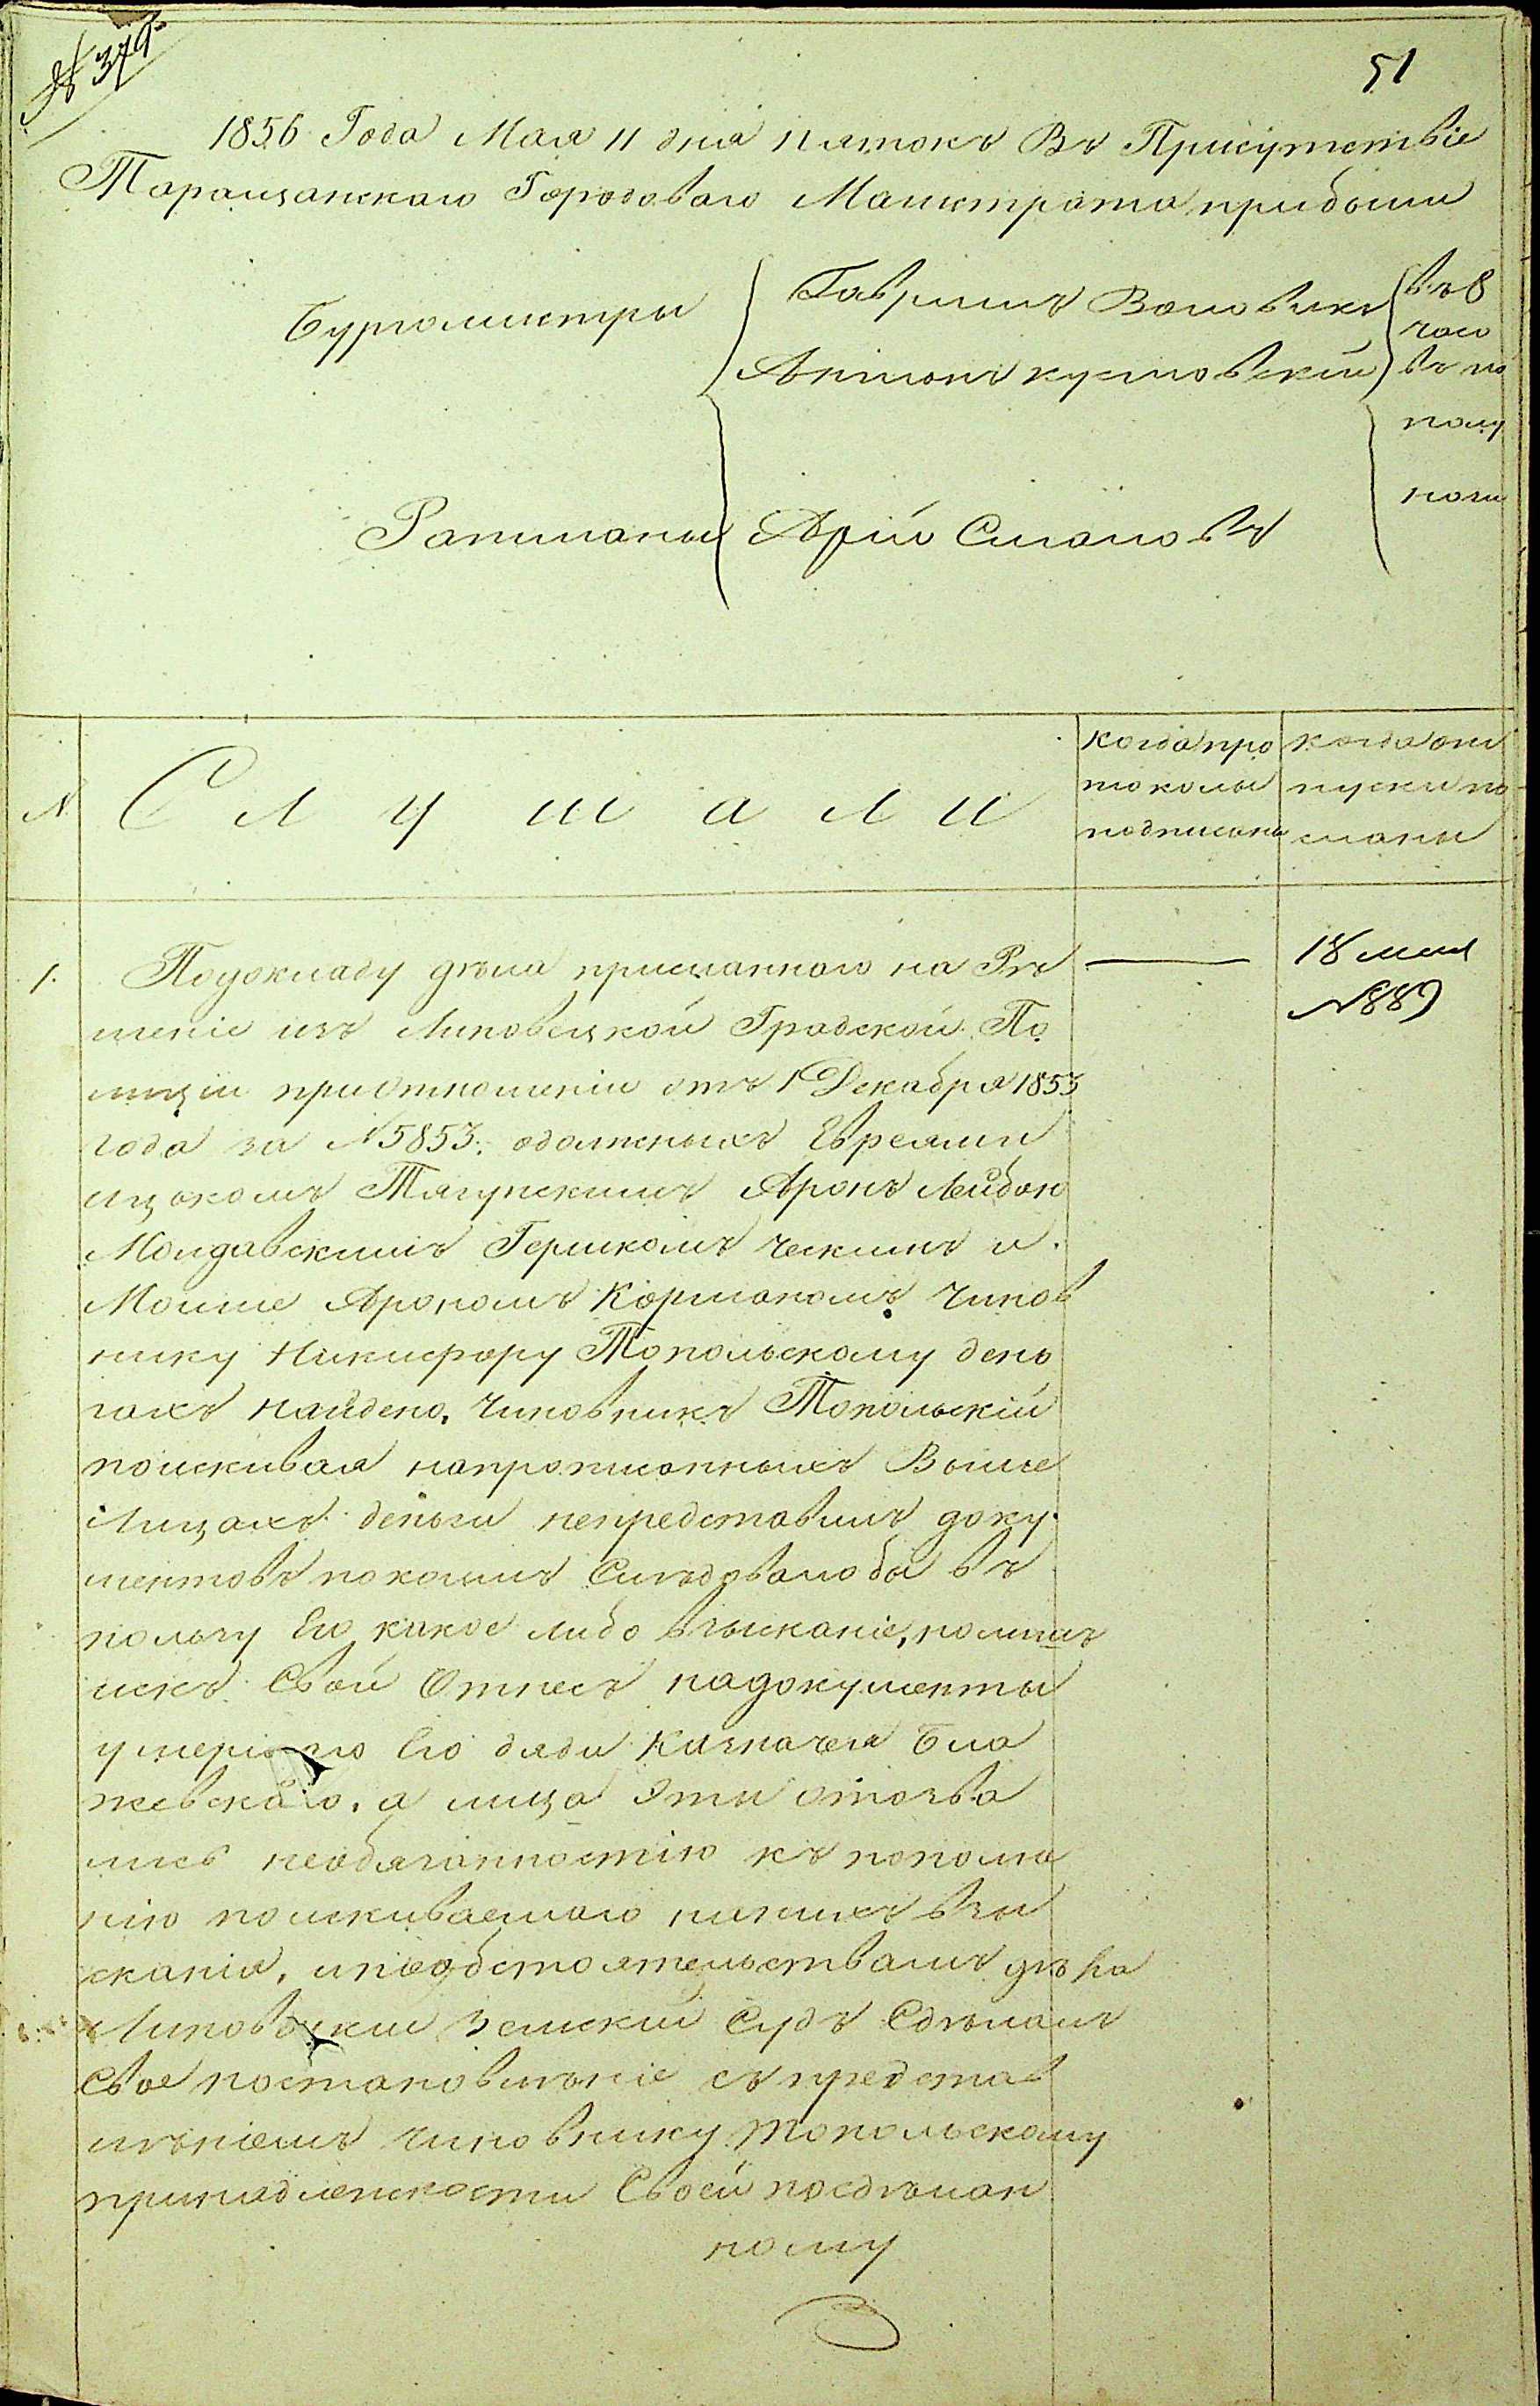 № 379
51
1856 Года Мая 11 дня пятокъ Въ Присутствіе
Таращанскаго Городоваго Магистрата прибыли
Бургомистры
Гаврилъ Воловикъ
Антонъ
Ратманы
Арій Слановъ
въ 8
часо
въ по
полу
ночи
№
Слушали
когда про
токолы
подписаны
когда от
пуски по
сланы
1.
18 мая
№ 889
По докладу дѣла присланного на Рѣ
шеніе изъ Липовецкой Градской По
лиціи при Отношеніи отъ 1 Декабря 1853
года за № 5853. о должныхъ Евреями
Ицкомъ Тягунскимъ Аронъ Лейбою
Молдавскимъ Гершкомъ Ческимъ и
Мошие Арономъ Корманомъ Чинов
нику Никифору Топольскому день
гахъ найдено, Чиновникъ Топольскій
поискивая на прописанныхъ Выше
Лицахъ деньги непредставилъ доку
ментовъ по коимъ Слѣдовало бы въ
пользу Его какое либо взысканіе,
искъ Свой Отнесъ на документы
умершаго Его дяди Казначея Бла
жевскаго, а лица Эти отозва
лись необязанностію къ пополне
нію поискиваемаго на нихъ взы
сканія, и по обстоятельствамъ дѣла
Липовецкій Земскій Судъ Сдѣлалъ
Свое постановлѣніе съ представ
лѣніемъ чиновнику Топольскому
принадлежности Своей по сдѣлан
ному